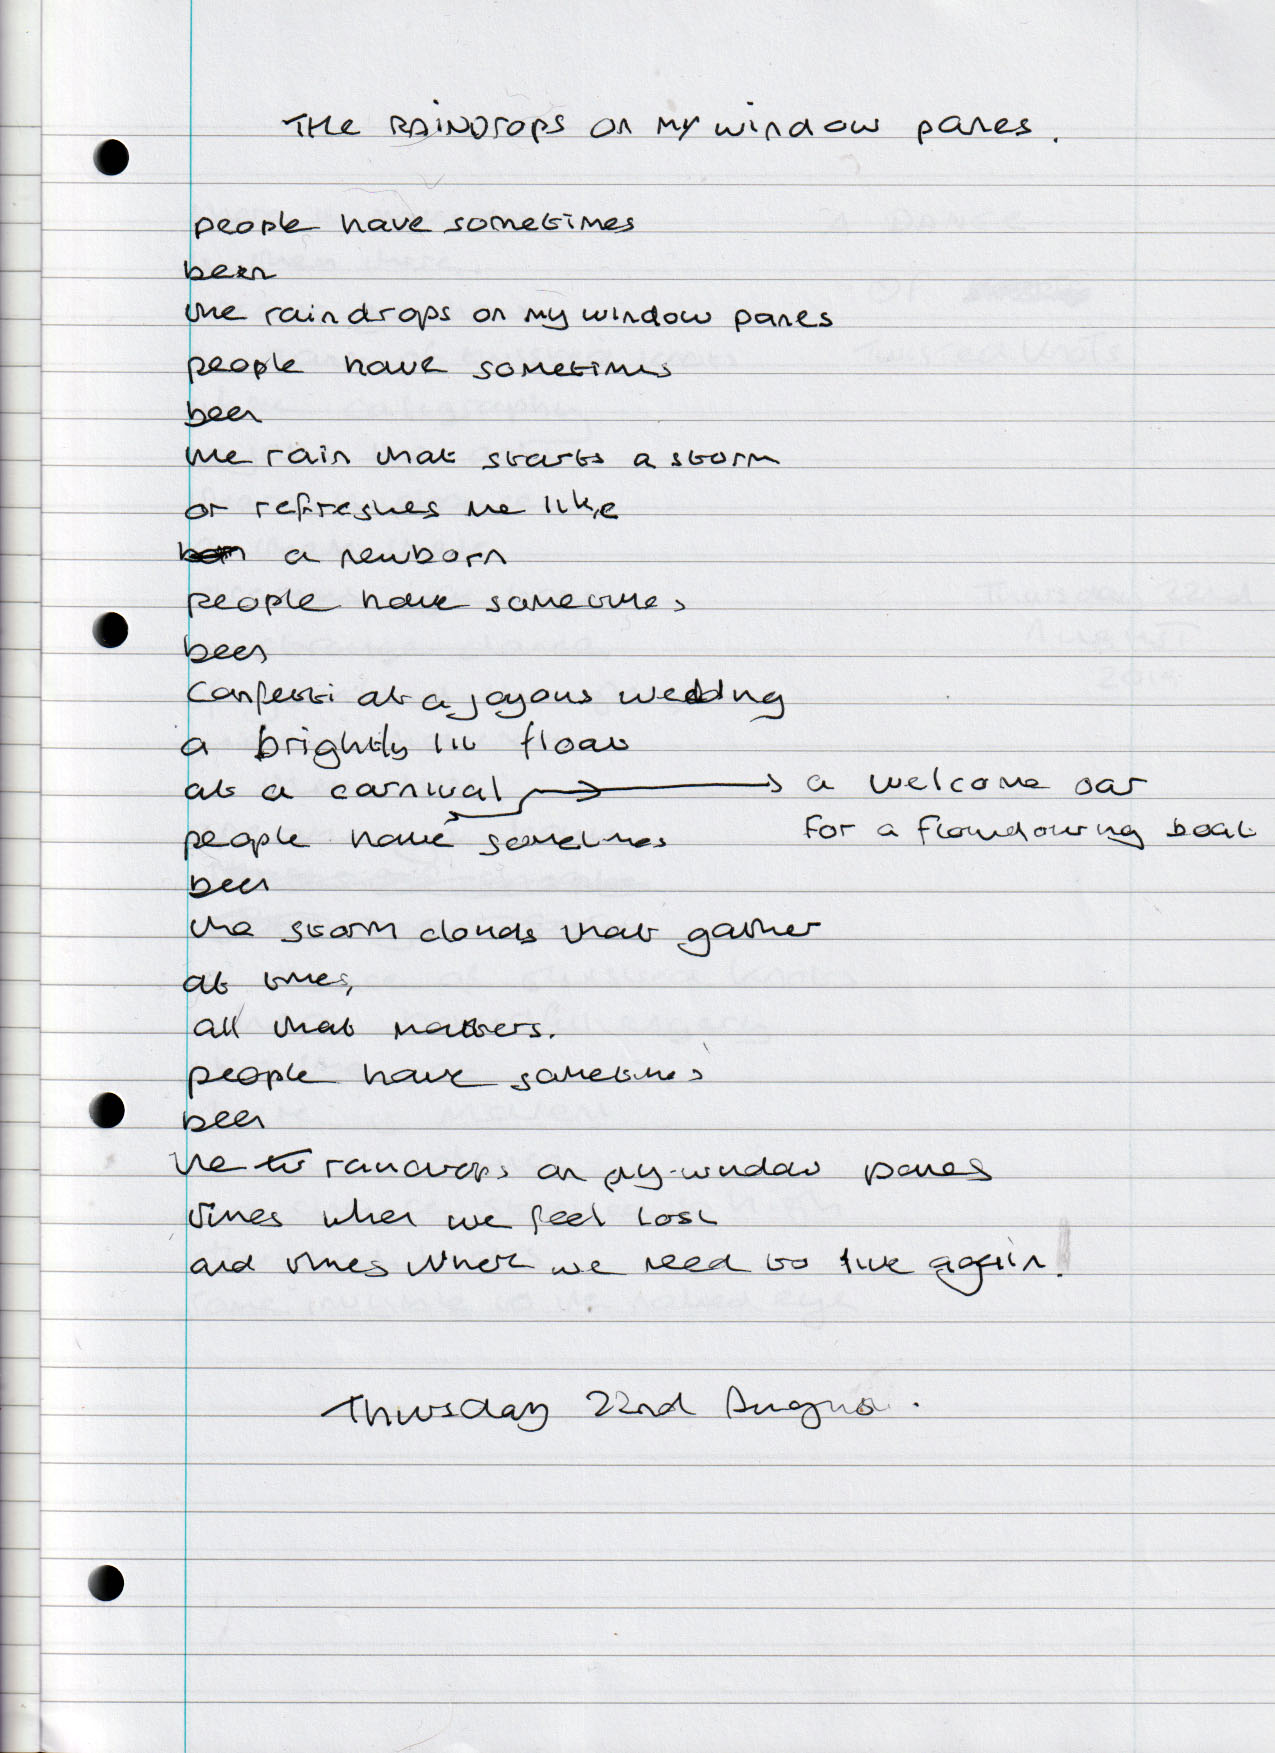 THe RAiNDrops on my window panes.
people have sometimes
been
the raindrops on my window panes
people have sometimes
been
the rain that starts a storm
or refreshes me like
a newborn
people have sometimes
been
Confetti at a joyous wedding
a brightly lit float
at a carnival
a welcome oar
for a floundouring boat
people have sometimes
been
the storm clouds that gather
at times,
all that matters.
people have sometimes
been
the raindrops on my window panes
times when we feel lost
and times when we need to live again.
Thursday 22nd August.